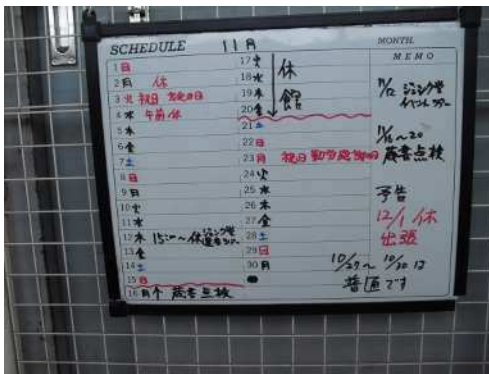 SCHEDULE 11月
MONTH
MEMO
1 日
2 月 休
3 火 祝日 文化の日
4 水 午前休
5 木
6 金
7 土
8 日
9 日
10 火
11 水
12 木 15:00〜休
13 金
14 土
15 日
16 月 蔵書点検
17 火 休
18 水
19 木 館
20 金
21 土
22 日
23 月 祝日 勤労感謝の日
24 火
25 水
26 木
27 金
28 土
29 日
30 月
11/12
11/16〜20
蔵書点検
予告
12/1 休
出張
10/27〜10/30は
普通です